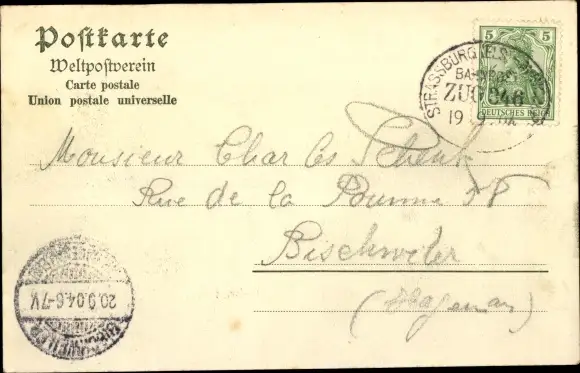 Postkarte
Weltpostverein
Carte postale
Union postale universelle
5 5
DEUTSCHES REICH
STRASSBURG (ELS
BAHNPOST
ZUG 046
19 9
Monsieur Charles Schenk
Rue de la Pomme 38
Bischweiler
(Hagenau)
20.9.04.6-7V.
BISCHWEILER